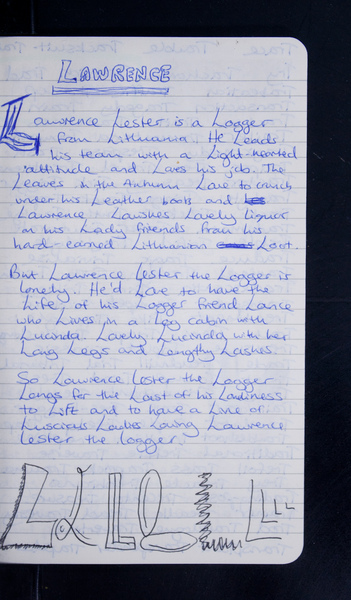 LAWRENCE
Lawrence Lester is a Logger
from Lithuania. He Leads
his team with a Light-hearted
attitude and Loves his job. The
Leaves in the Autumn Love to crunch
under his Leather boots and
Lawrence Lavishes Lovely liquor
on his Lady friends from his
hard-earned Lithuanian Loot.
But Lawrence Lester the Logger is
lonely. He'd Love to have the
Life of his Logger friend Lance
who Lives in a Log cabin with
Lucinda. Lovely Lucinda with her
Long Legs and Lengthy Lashes.
So Lawrence Lester the Logger
Longs for the Last of his Loneliness
to Lift and to have a Line of
Luscious Ladies Loving Lawrence
Lester the Logger.
L L L L L L L L L